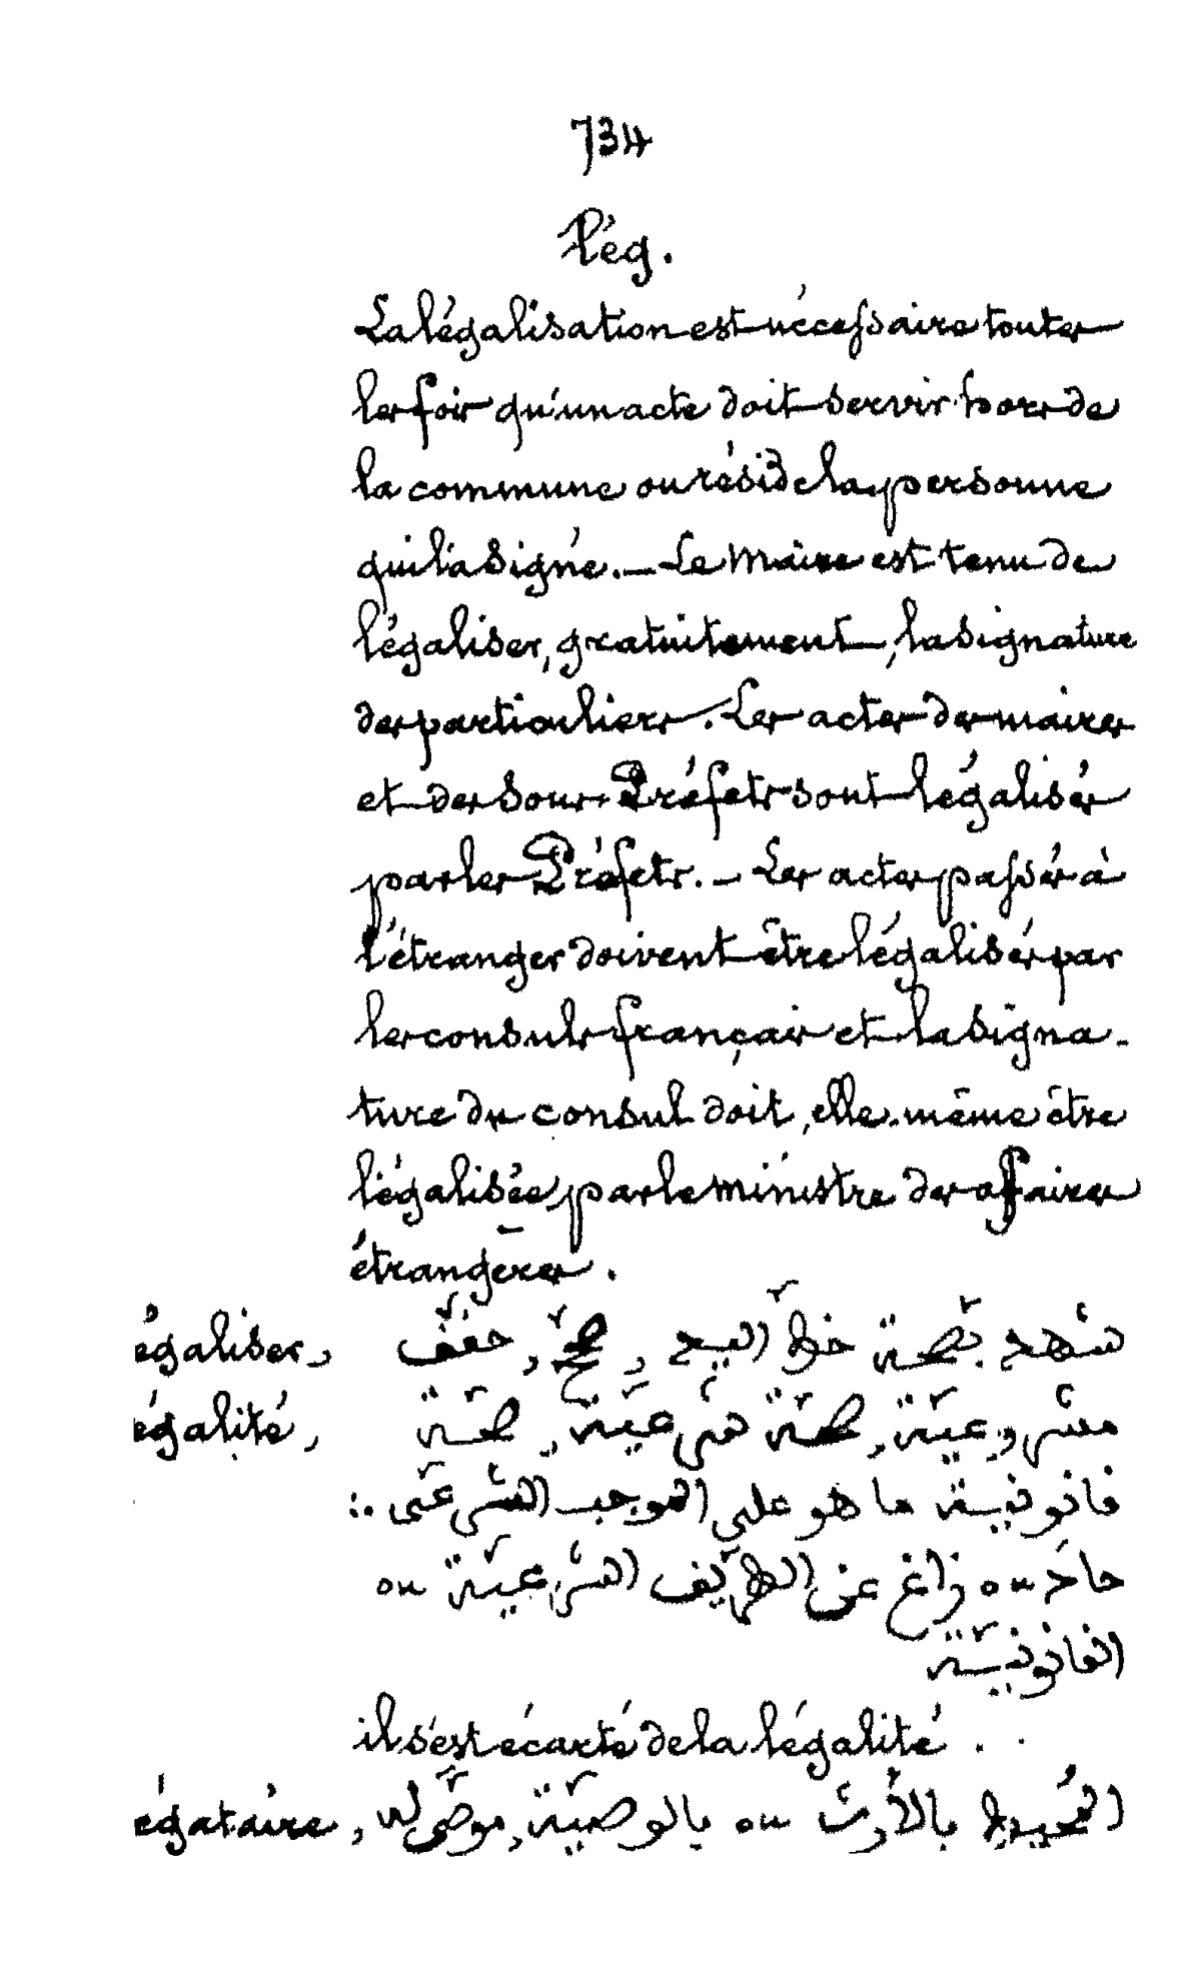 734
Lég.
La légalisation est nécessaire toutes
les fois qu'un acte doit servir hors de
la commune ou réside la personne
qui l'a signé. — Le Maire est tenu de
légaliser, gratuitement, la signature
des particuliers. Les actes des maires
et des Sous-Préfets sont légalisés
par les Préfets. — Les actes passés à
l'étranger doivent être légalisés par
les consuls français et la signa-
ture du consul doit, elle-même être
légalisée par le ministre des affaires
étrangères.
égaliser, شهد بصحة خط اليد, صحّح, حقّق
égalité, مشروعيّة, صحّة شرعيّة, صحّة
قانونيّة ما هو على الموجب الشرعي :.
حاد ou زاغ عن الطريق الشرعيّة ou
القانونيّة
il s'est écarté de la légalité . .
égataire, بالأرث ou بالوصيّة, موصّى له